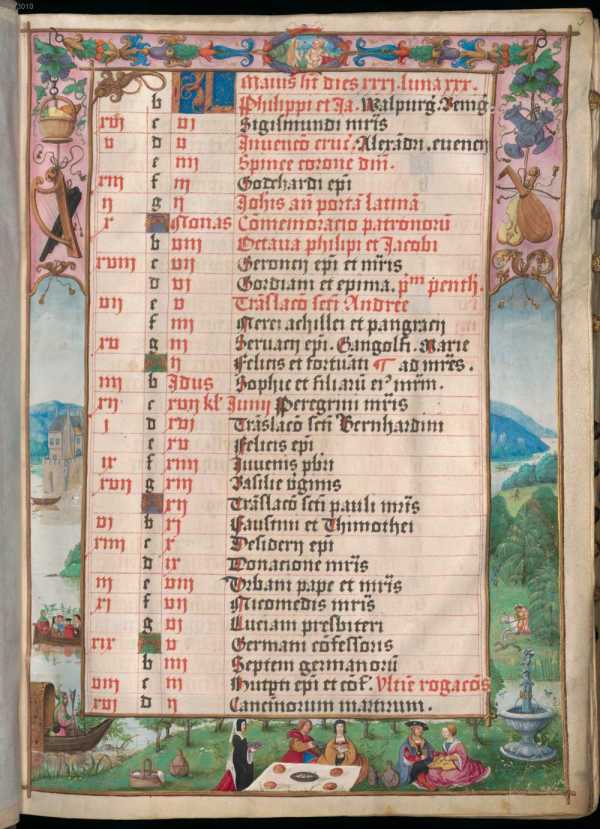 Maius ht dies xxxi. luna xxx.
b Philippi et Ja. Walpurg.
xvi c vi Sigismundi mris
v d v Invencō cruc. Alexādri. evencij
e iiii Spinee corone dni.
xiii f iii Godehardi epi
ii g ii Johis añ portā latinā
x Nonas Cōmemoracio patronorū
b viii Octava philipi et Jacobi
xviii c vii Geroncij epi et mris
d vi Gordiani et epima.
vii e v Trāslacō scti Andree
f iiii Nerei achillei et pangracij
xv g iii Servacij epi. Gangolfi. Marie
ii Felicis et fortunati ad mres.
iiii b Idus Sophie et filiarū
xii c xvii kl Junij Peregrini mris
i d xvi Trāslacō scti Bernhardini
e xv Felicis epi
ix f xiiii Juvenis pbri
xvii g xiii Basilie vginis
xii Trāslacō scti pauli mris
vi b xi Faustini et Thimothei
xiiii c x Desiderij epi
d ix Donacione mris
iii e viii Urbani pape et mris
xi f vii Nicomedis mris
g vi Luciani presbiteri
xix v Germani cōfessoris
b iiii Septem germanorū
viii c iii epi et cōf. Ultie rogacōs
xvi d ii Cancinorum martirum.